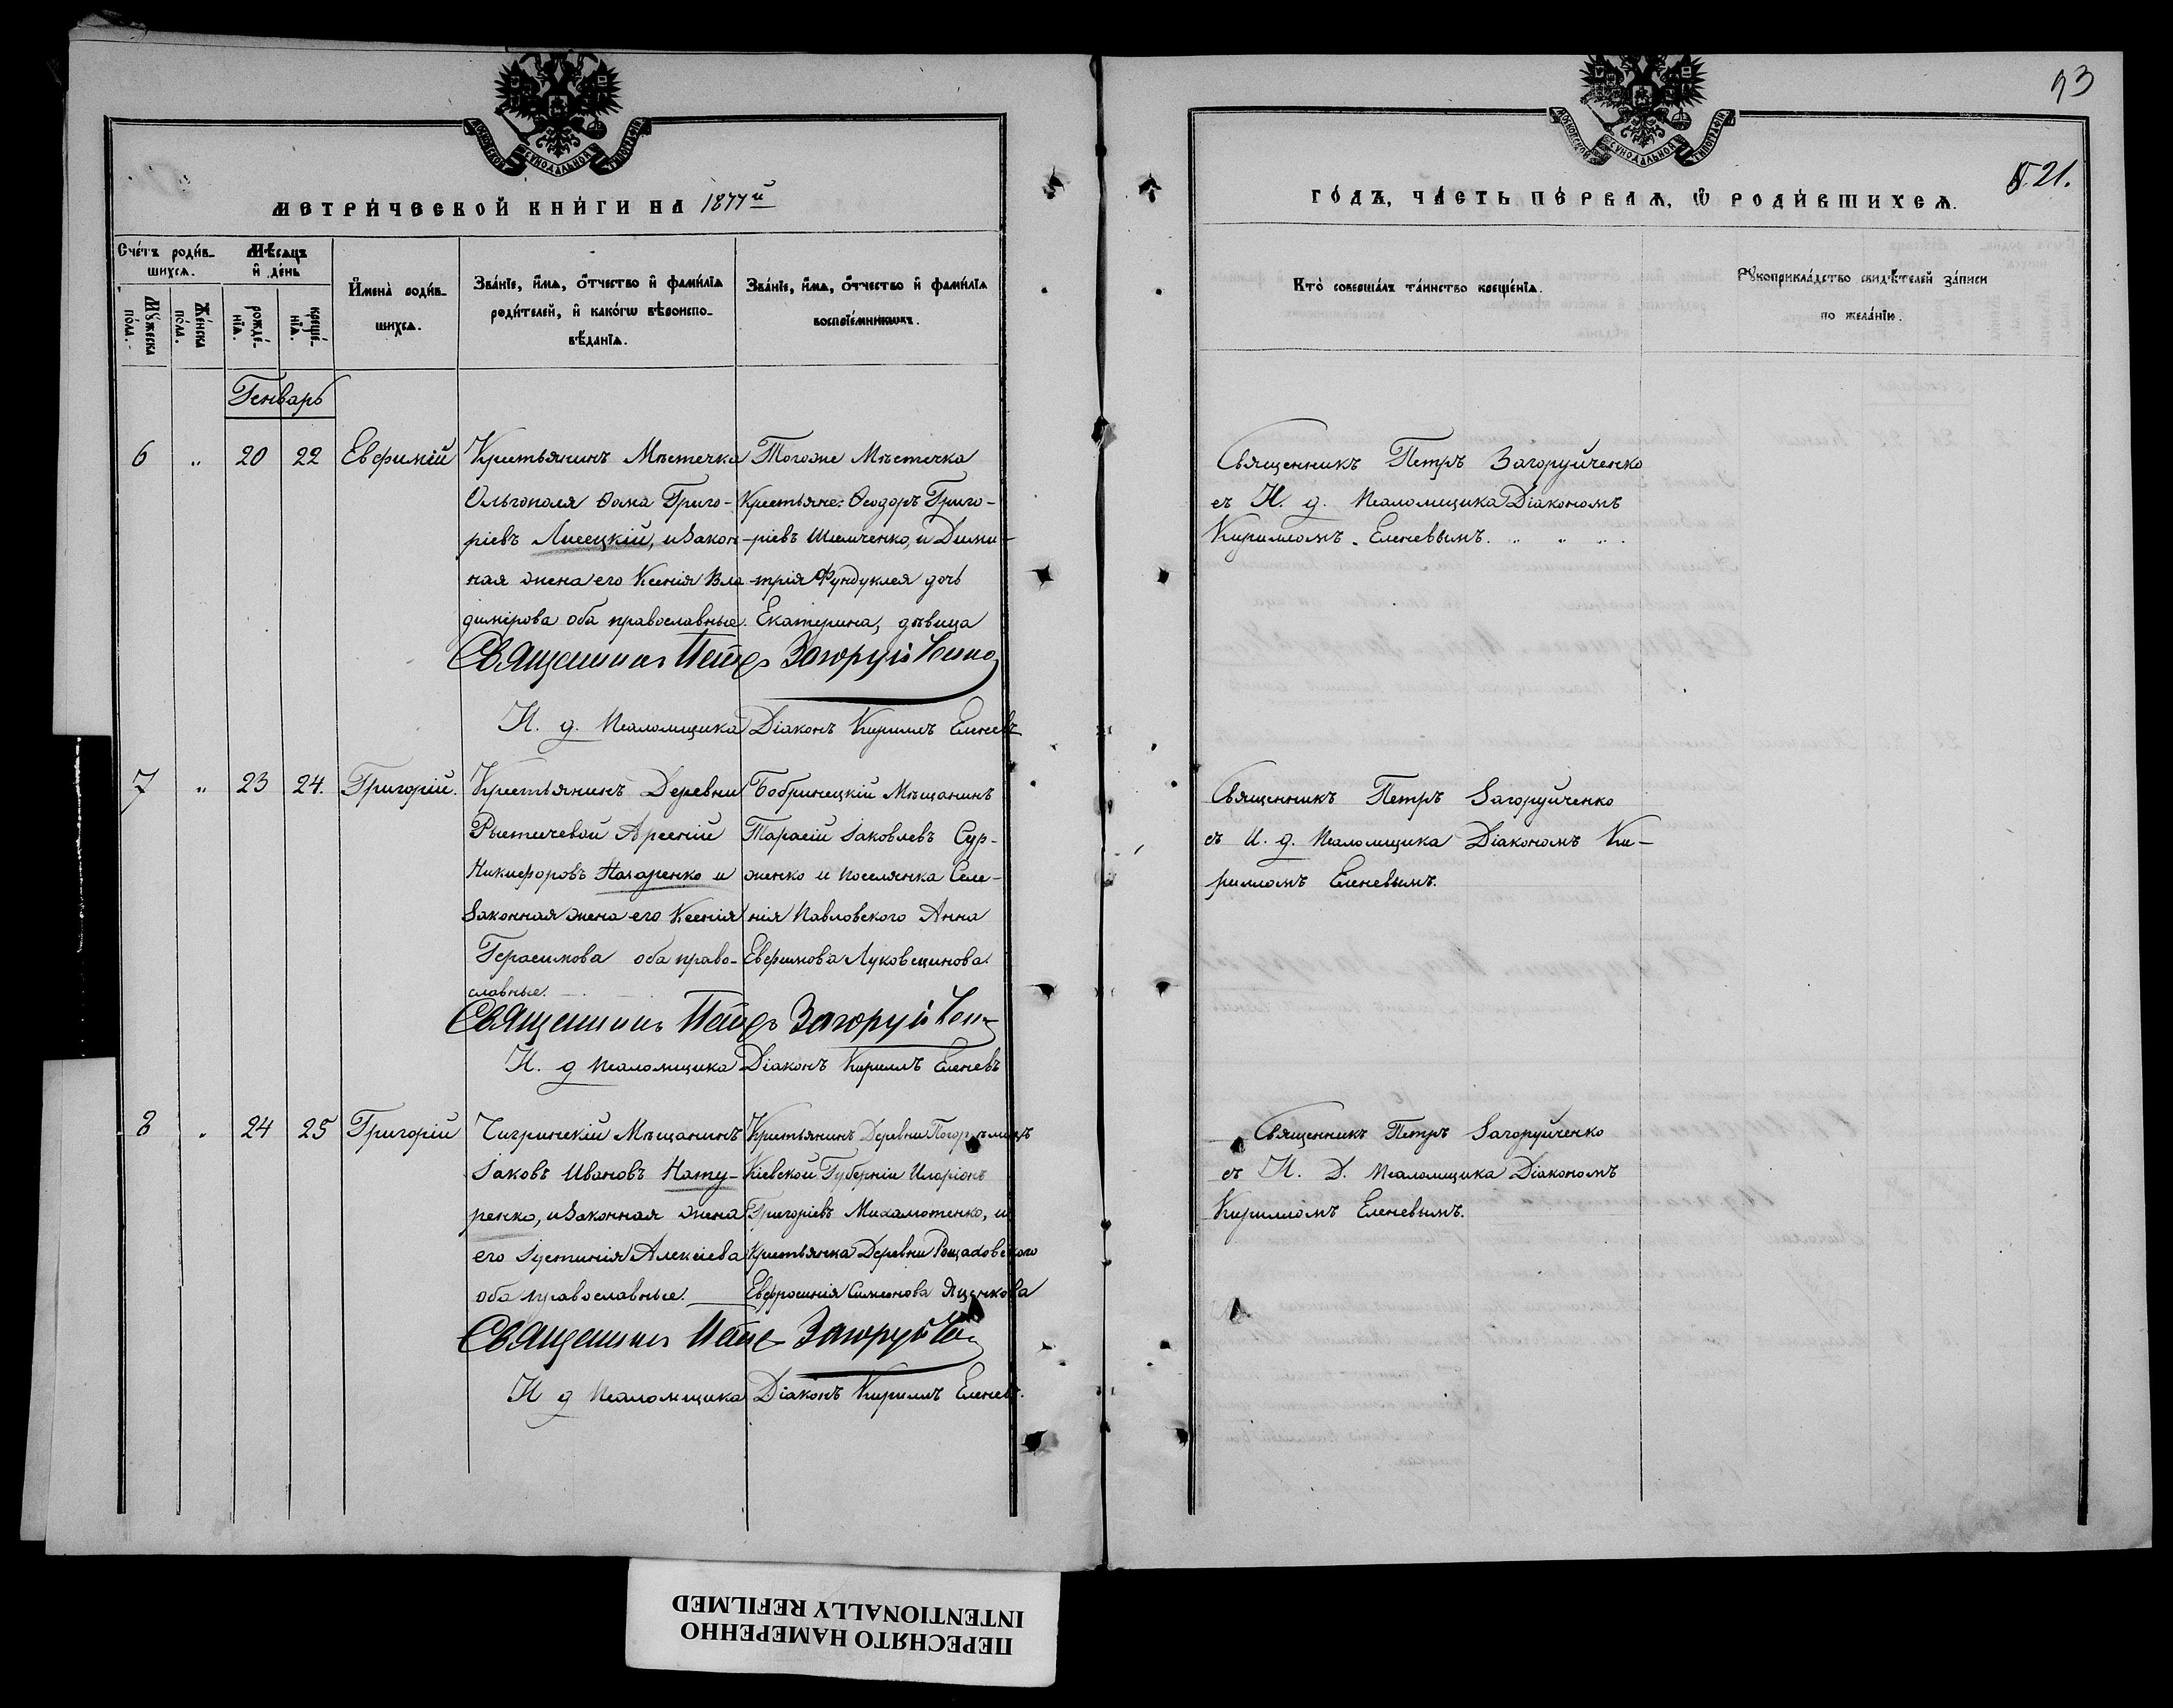 МОСКОВСКОЙ СѴНОДАЛЬНОЙ ТИПОГРАФІИ
МЕТРИ́ЧЕСКОЙ КНИ́ГИ НА 1877й
Сче́тъ роди́в-
шихсѧ.
Мѣ́сѧцъ
и҆ де́нь
Мꙋ́жеска
по́ла.
Же́нска
по́ла.
рожде́-
нїѧ.
креще́-
нїѧ.
И҆мена̀ роди́в-
шихсѧ.
Зва́нїе, и҆́мѧ, ѻ҆́тчество и҆ фами́лїѧ
роди́телей, и҆ како́гѡ вѣроиспо-
вѣ́данїѧ.
Зва́нїе, и҆́мѧ, ѻ҆́тчество и҆ фами́лїѧ
воспрїе́мникѡвъ.
Генварь
6 „ 20 22 Евфимій
Крестьянинъ Мѣстечка
Ольгополя Ѳома Григо-
ріевъ Лисецкій, и Закон-
ная жена его Ксенія Вла
димірова оба православные.
Тогоже Мѣстечка
Крестьяне: Ѳеодоръ Григо-
ріевъ Шемченко, и Дими-
трія Фундуклея дочь
Екатерина, дѣвица
Священникъ Петръ Загоруйченко
И. д. Псаломщика Діаконъ Кириллъ Еленевъ
7 „ 23 24. Григорій.
Крестьянинъ Деревни
Рытичевой Арсеній
Никифоровъ Назаренко и
Законная жена его Ксенія
Герасимова оба право-
славные.
Бобринецкій Мѣщанинъ
Тарасій Іаковлевъ Сур-
женко и поселянка Селе-
нія Павловского Анна
Евфимова Луковщинова.
Священникъ Петръ Загоруйченко
И. д Псаломщика Діаконъ Кириллъ Еленевъ
8 „ 24 25 Григорій
Чигринскій Мѣщанинъ
Іаковъ Ивановъ Нату-
ренко, и Законная жена
его Іустинія Алексіева
оба православные.
Крестьянинъ Деревни
Кіевской Губерніи Иларіонъ
Григоріевъ Михамотенко, и
Крестьянка Деревни
Евфросинія Симеонова Яценкова
Священникъ Петръ Загоруйченко
И д Псаломщика Діаконъ Кириллъ Еленевъ.
93
МОСКОВСКОЙ СѴНОДАЛЬНОЙ ТИПОГРАФІИ
№ 21.
ГО́ДЪ, ЧА́СТЬ ПЕ́РВАѦ, Ѡ҆ РОДИ́ВШИХСѦ.
Кто̀ соверша́лъ та́инство креще́нїѧ.
Рꙋкоприкла́дство свидѣ́телей за́писи
по жела́нїю.
Священникъ Петръ Загоруйченко
съ И. д. Псаломщика Діакономъ
Кирилломъ Еленевымъ. „ „ „ .
Священникъ Петръ Загоруйченко
съ И. д. Псаломщика Діакономъ Ки-
рилломъ Еленевымъ.
Священникъ Петръ Загоруйченко
съ И. Д. Псаломщика Діакономъ
Кирилломъ Еленевымъ.
ПЕРЕСНЯТО НАМЕРЕННО
INTENTIONALLY REFILMED